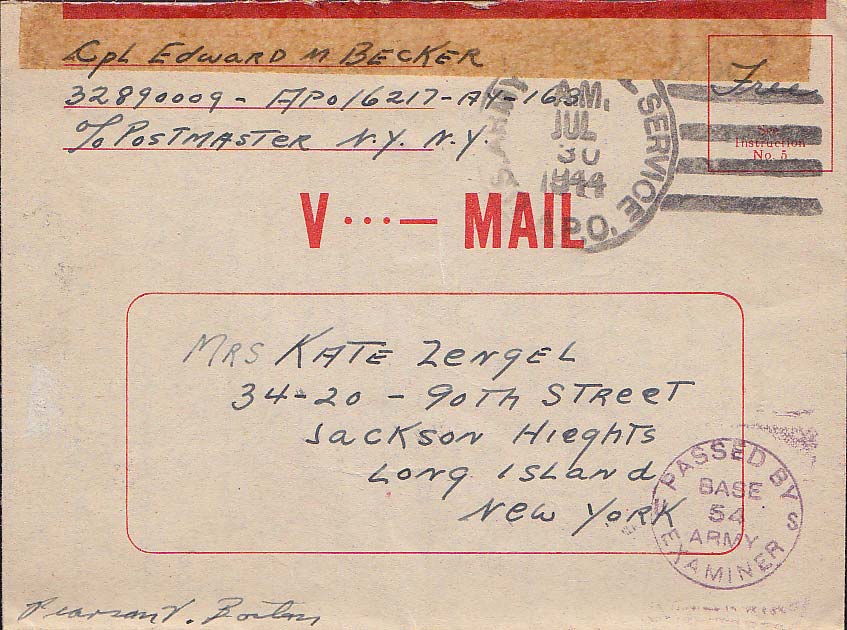 Cpl Edward M Becker
32890009 - APO 16217-AY-163
c/o Postmaster N.Y. N.Y.
Free
See
Instruction
No. 5
U.S. ARMY SERVICE
A.M.
JUL
30
1944
A.P.O.
V ···— MAIL
Mrs Kate Zengel
34-20 - 90th Street
Jackson Hieghts
Long Island
New York
PASSED BY
BASE
54
ARMY
EXAMINER
U S
Boston